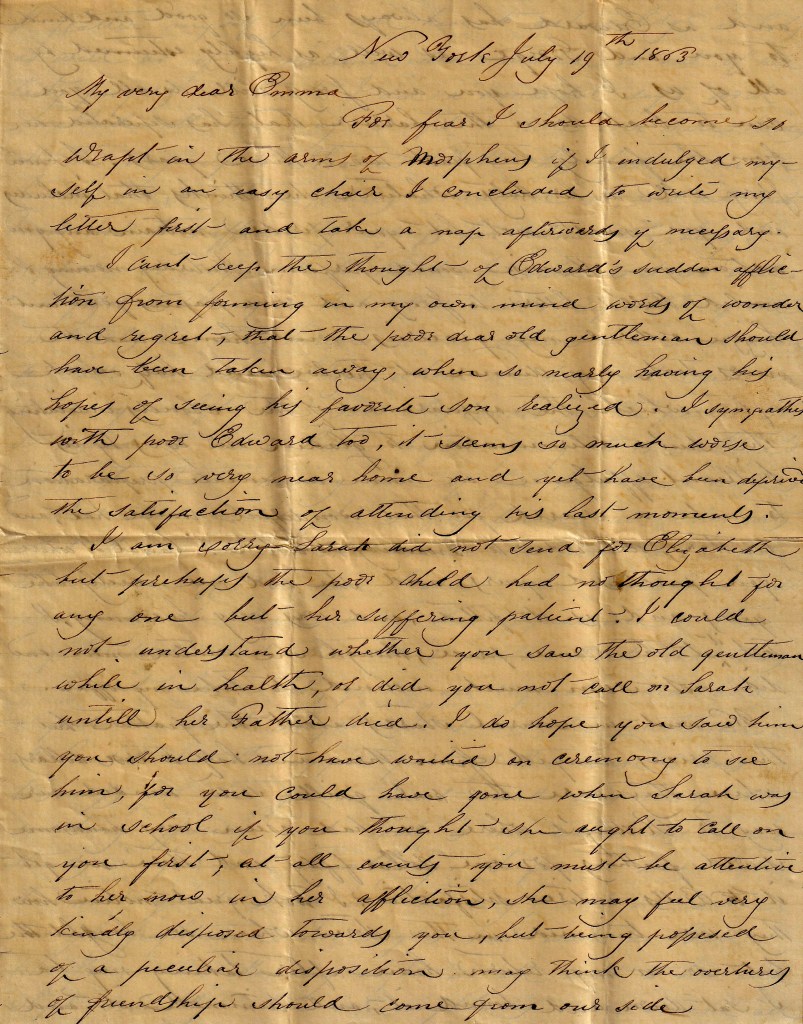 New York July 19th 1863
My very dear Emma
For fear I should become so
wrapt in the arms of Morpheus if I indulged my-
self in an easy chair I concluded to write my
letter first and take a nap afterwards if necessary.
I cant keep the thought of Edward's sudden afflic-
tion from forming in my own mind words of wonder
and regret, that the poor dear old gentleman should
have been taken away, when so nearly having his
hopes of seeing his favorite son realized. I sympathis
with poor Edward too, it seems so much worse
to be so very near home and yet have been deprived
the satisfaction of attending his last moments.
I am sorry Sarah did not send for Elizabeth
but prehaps the poor child had no thought for
any one but her suffering patient. I could
not understand whether you saw the old gentleman
while in health, or did you not call on Sarah
untill her Father died. I do hope you saw him
you should not have waited on ceremony to see
him, for you could have gone when Sarah was
in school if you thought she aught to call on
you first, at all events you must be attentive
to her now in her affliction, she may feel very
kindly disposed towards you, but being possesed
of a peculiar disposition may think the overtures
of friendship should come from our side